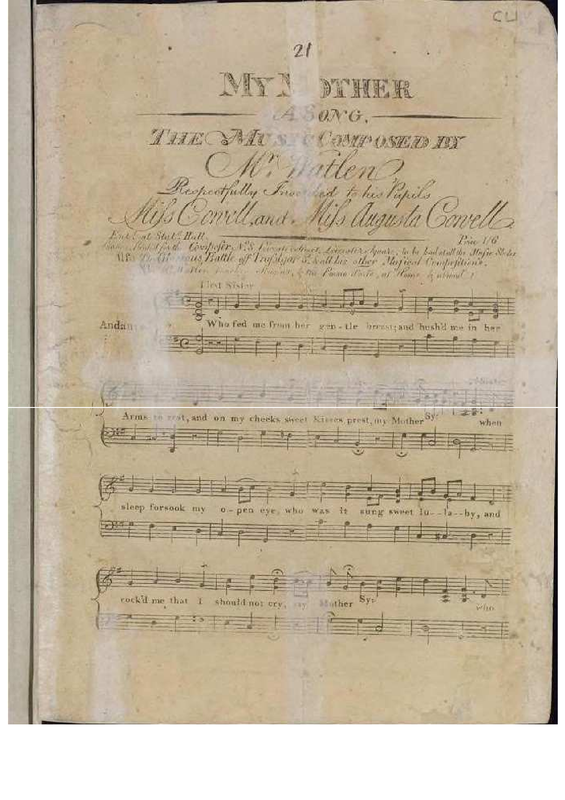 CLI
21
MY MOTHER
A SONG.
THE MUSIC COMPOSED BY
Mr. Watlen
Respectfully Inscribed to his Pupils
Miss Cowell, and Miss Augusta Cowell
Ent. at Stat. Hall. Price 1/6
for the Composer, Leicester Square, to be had at all the Music Shops
Battle off Trafalgar & all his other Musical Compositions.
First Sister
Andan
Who fed me from her gen-tle breast; and hush'd me in her
Arms to rest, and on my cheeks sweet Kisses prest, my Mother Sy: when
sleep forsook my o-pen eye, who was it sung sweet lu--la--by, and
rock'd me that I should not cry, my Mother Sy: who